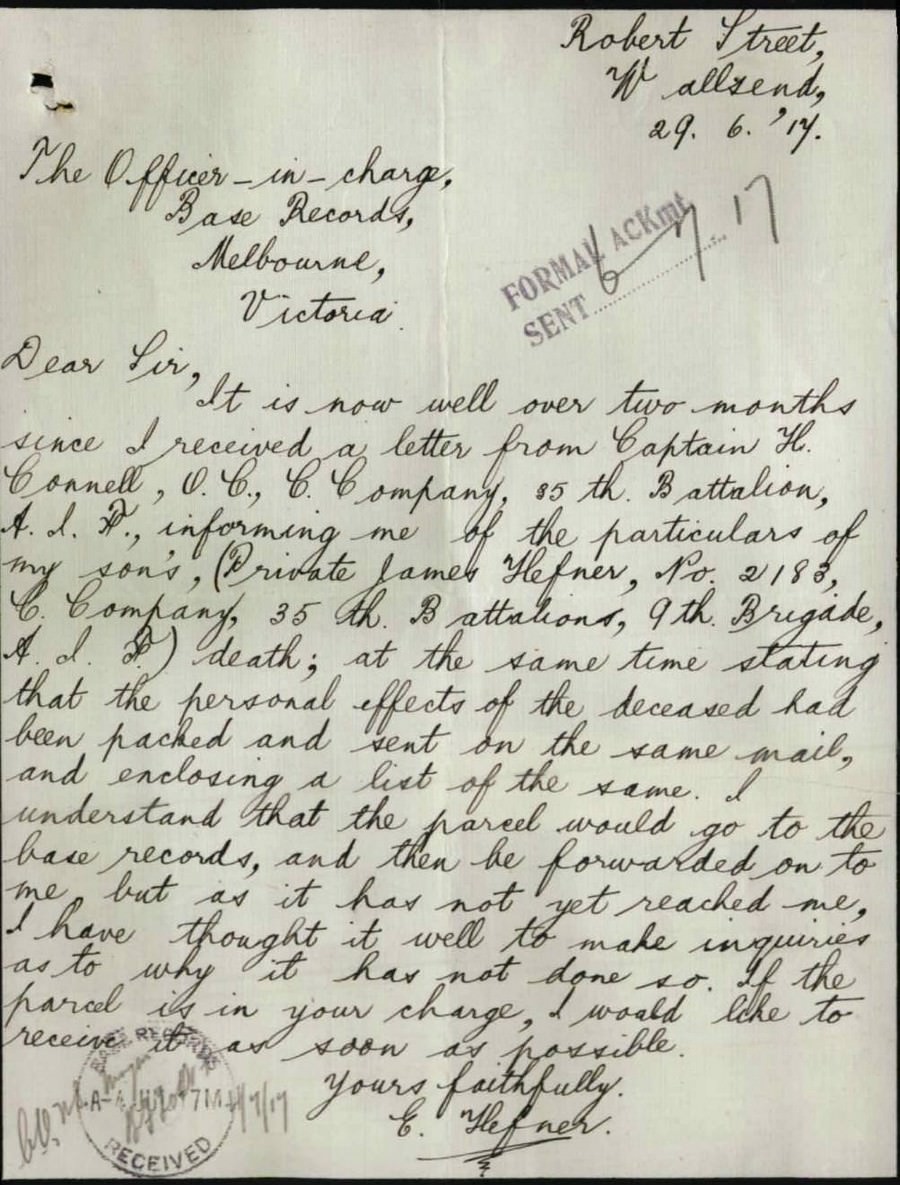 Robert Street,
Wallsend,
29. 6. '17.
The Officer-in-charge,
Base Records,
Melbourne,
Victoria.
FORMAL ACKmt
SENT 6 7 17
Dear Sir,
It is now well over two months
since I received a letter from Captain H.
Connell, O.C., C. Company, 35 th. Battalion,
A. I. F., informing me of the particulars of
my son's, (Private James Hefner, No. 2183,
C. Company, 35 th. Battalions, 9 th. Brigade,
A. I. F.) death; at the same time stating
that the personal effects of the deceased had
been packed and sent on the same mail,
and enclosing a list of the same. I
understand that the parcel would go to the
base records, and then be forwarded on to
me, but as it has not yet reached me,
I have thought it well to make inquiries
as to why it has not done so. If the
parcel is in your charge, I would like to
receive it as soon as possible.
Yours faithfully.
E. Hefner.
BASE RECORDS
RECEIVED